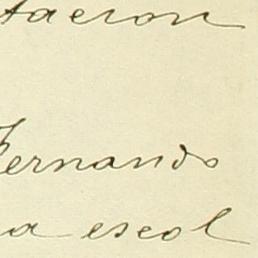 taeron
Fernando
a escol